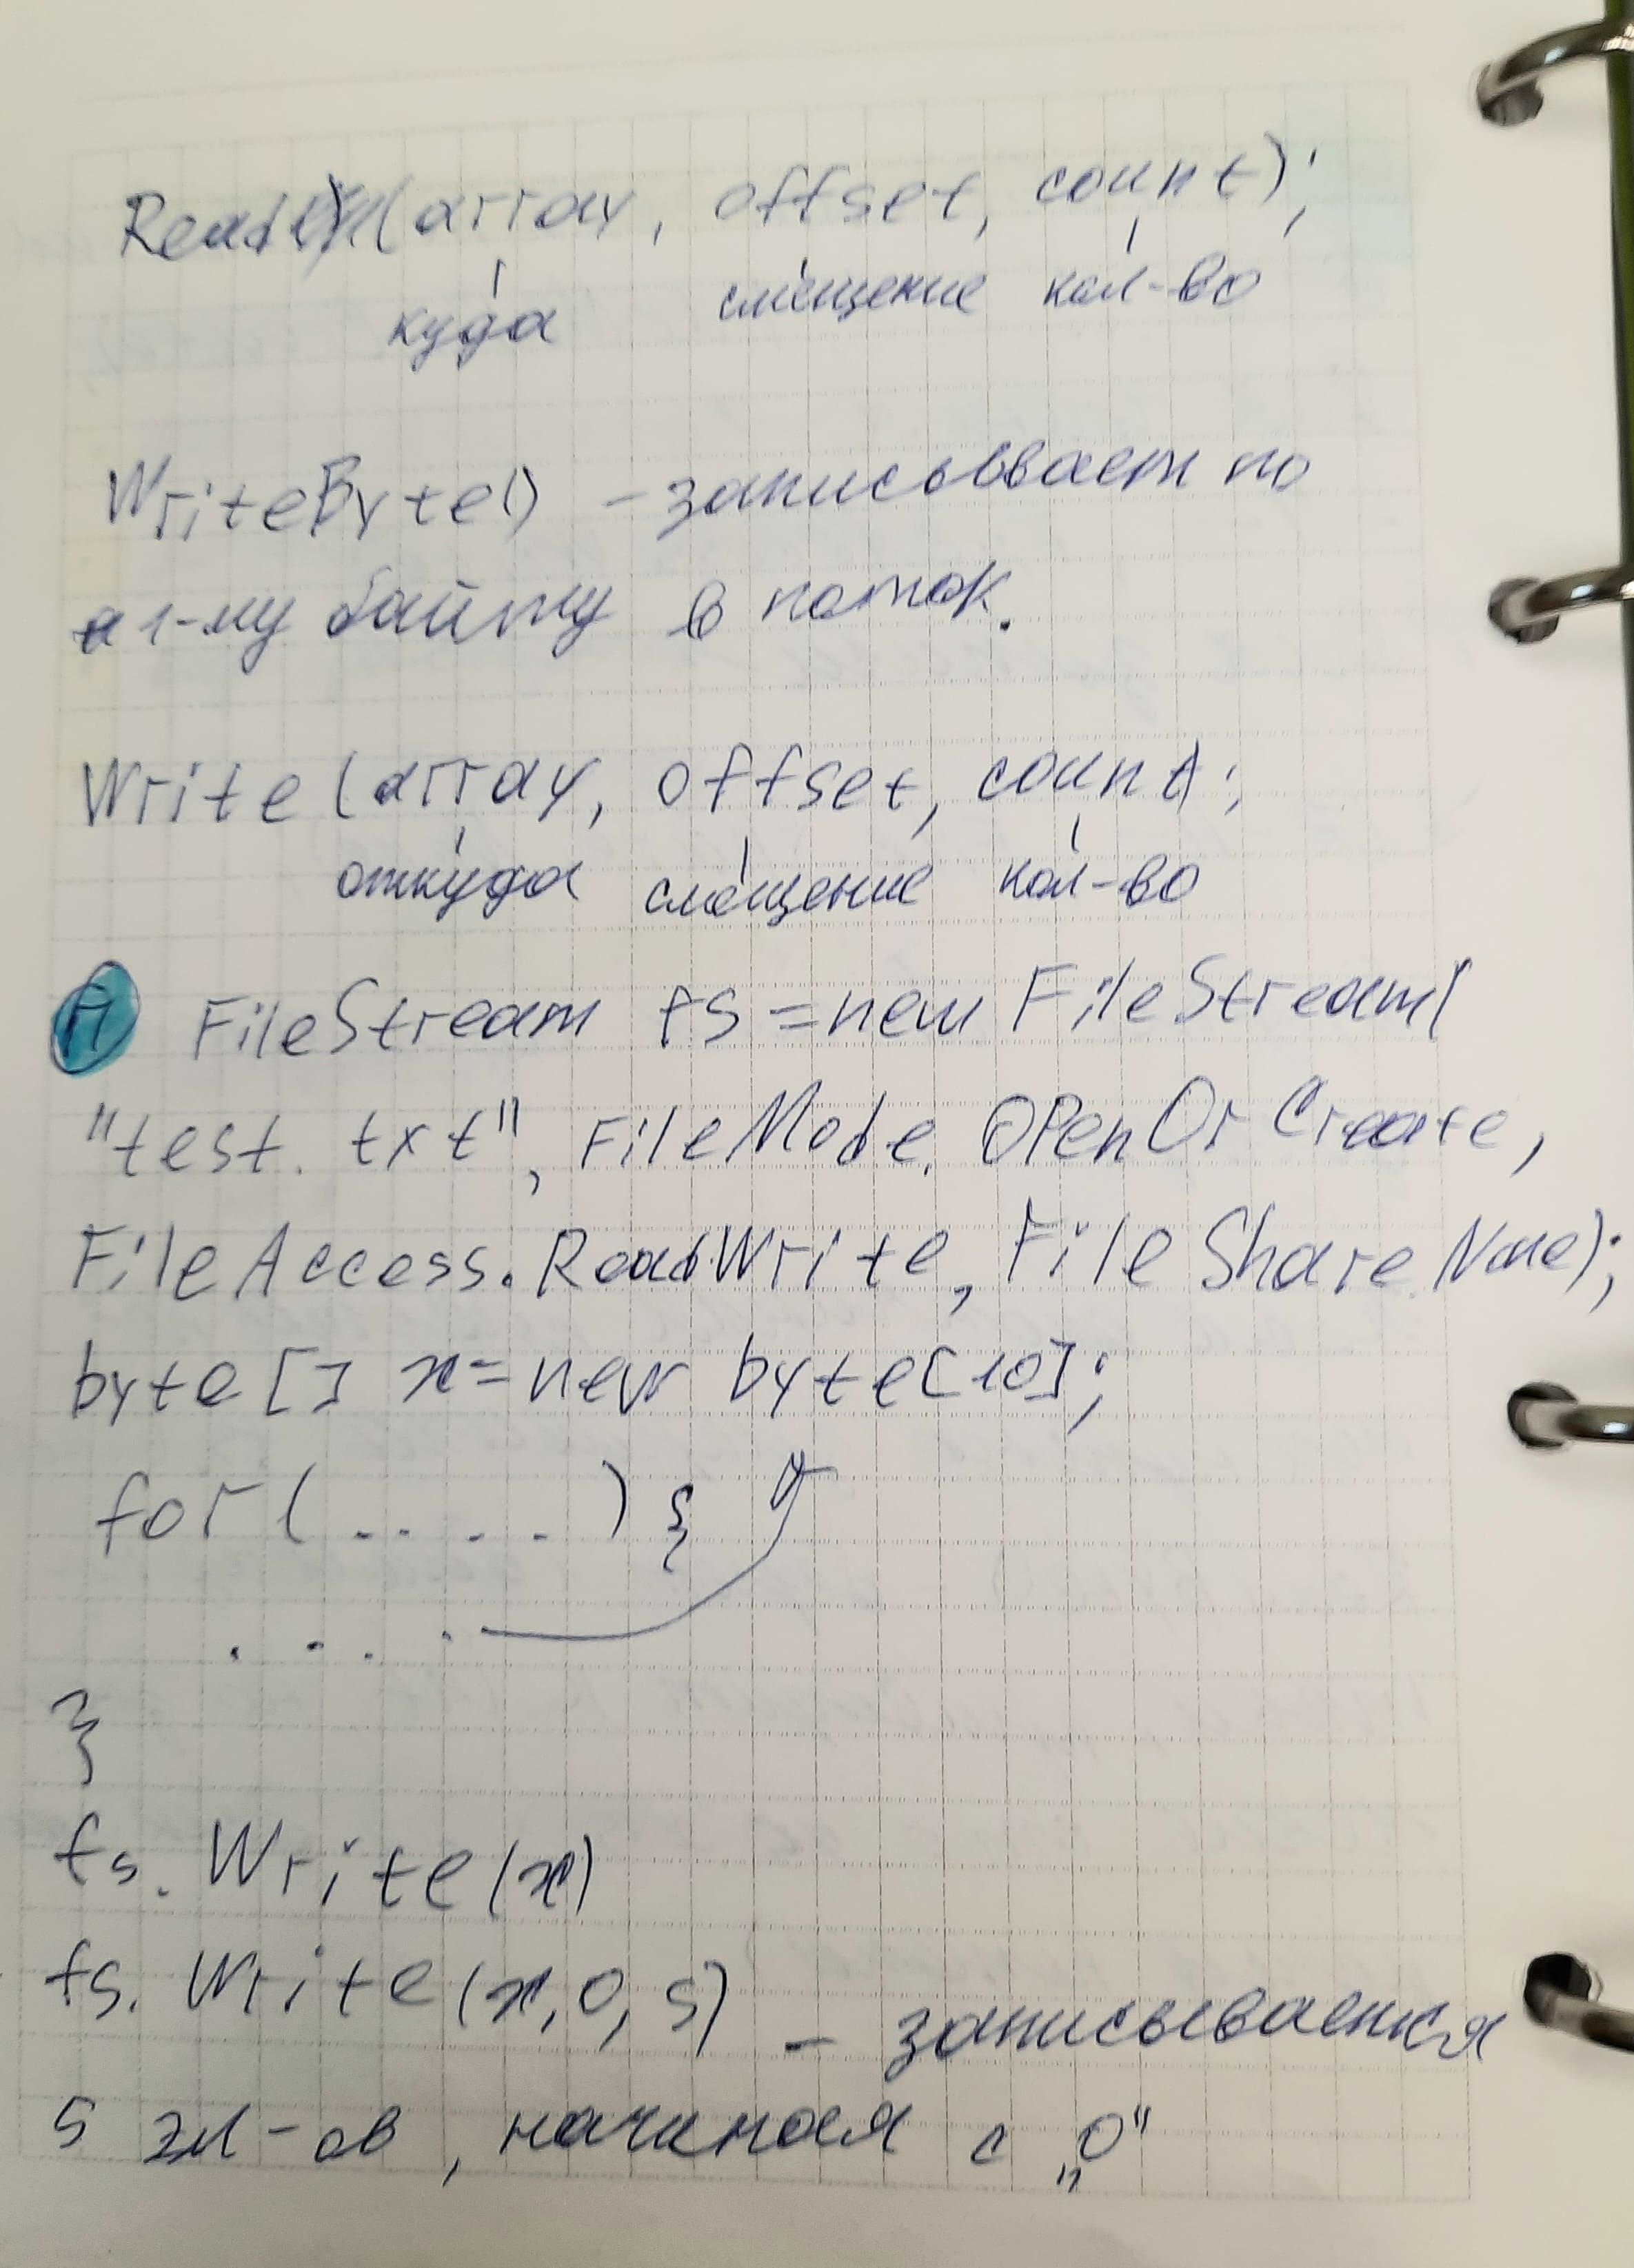 Read(array, offset, count);
куда смещение кол-во
WriteByte() - записывает по
1-му байту в поток.
Write (array, offset, count);
откуда смещение кол-во
П FileStream fs = new FileStream(
"test.txt", FileMode.OpenOrCreate,
FileAccess.ReadWrite, FileShare.None);
byte[] x = new byte[10];
for (.....) {
. . . .
}
fs.Write(x)
fs.Write(x, 0, 5) - записывается
5 эл-ов, начиная с „0"